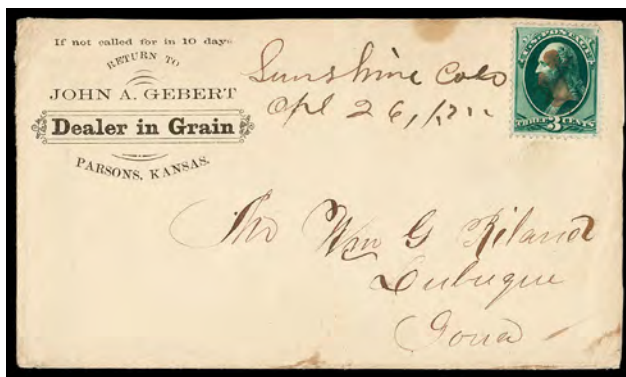 If not called for in 10 days
RETURN TO
JOHN A. GEBERT
Dealer in Grain
PARSONS, KANSAS.
Sunshine Colo
Apl 26,
U.S. POSTAGE
THREE 3 CENTS
Wm G
Dubuque
Iowa